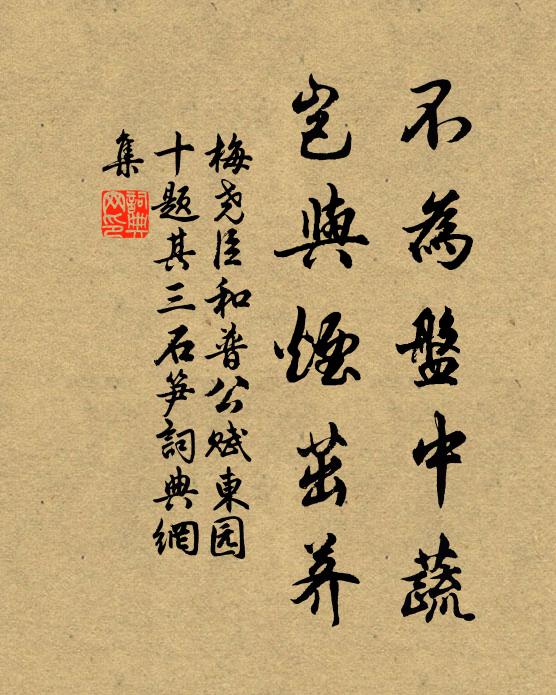 不為盤中蔬
岂與煙茁养
梅尧臣和普公赋東园
十题其三石笋詞典網
集
詞典
网印